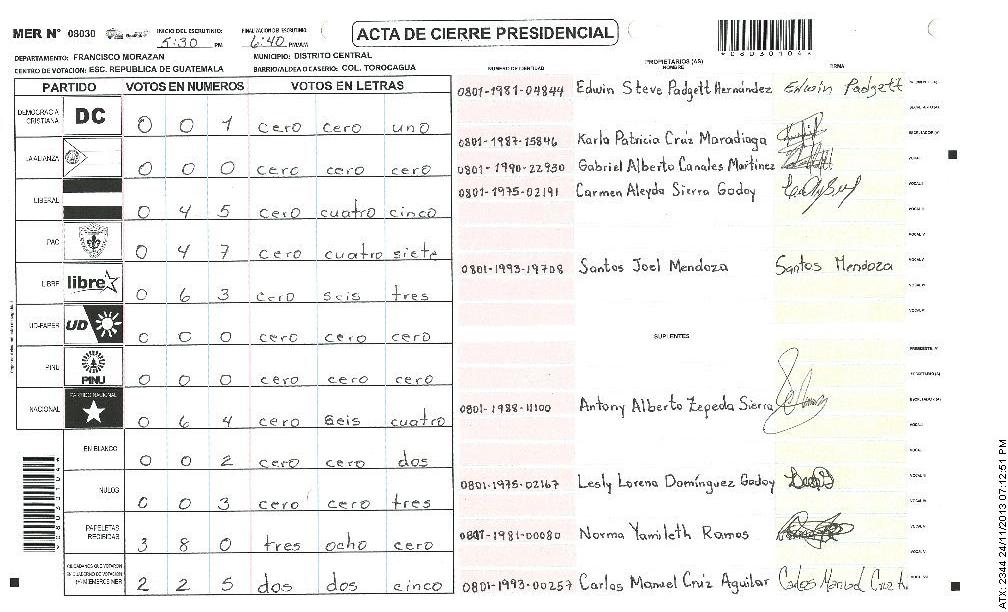 MER N° 08030
INICIO DEL ESCRUTINIO:
5:30 PM
FINALIZACION DE ESCRUTINIO:
6:40 PM/AM
ACTA DE CIERRE PRESIDENCIAL
*08030104*
DEPARTAMENTO: FRANCISCO MORAZAN
MUNICIPIO: DISTRITO CENTRAL
CENTRO DE VOTACION: ESC. REPUBLICA DE GUATEMALA
BARRIO/ALDEA O CASERIO: COL. TOROCAGUA
PARTIDO VOTOS EN NUMEROS VOTOS EN LETRAS
DEMOCRACIA CRISTIANA DC 0 0 1 cero cero uno
LA ALIANZA 0 0 0 cero cero cero
LIBERAL 0 4 5 cero cuatro cinco
PAC 0 4 7 cero cuatro siete
LIBRE libre 0 6 3 cero seis tres
UD-FAPER UD 0 0 0 cero cero cero
PINU PINU 0 0 0 cero cero cero
NACIONAL PARTIDO NACIONAL 0 6 4 cero seis cuatro
EN BLANCO 0 0 2 cero cero dos
NULOS 0 0 3 cero cero tres
PAPELETAS RECIBIDAS 3 8 0 tres ocho cero
CIUDADANOS QUE VOTARON EN CUADERNO DE VOTACION (+) MIEMBROS MER 2 2 5 dos dos cinco
NUMERO DE IDENTIDAD PROPIETARIOS (AS) NOMBRE FIRMA
0801-1981-04844 Edwin Steve Padgett Hernández Edwin Padgett
0801-1987-15846 Karla Patricia Cruz Maradiaga
0801-1990-22930 Gabriel Alberto Canales Martinez
0801-1975-02191 Carmen Aleyda Sierra Godoy
0801-1993-19708 Santos Joel Mendoza Santos Mendoza
SUPLENTES
0801-1988-11100 Antony Alberto Zepeda Sierra
0801-1975-02167 Lesly Lorena Domínguez Godoy
0801-1981-00080 Norma Yamileth Ramos
0801-1993-00257 Carlos Manuel Cruz Aguilar
ATX-2344 24/11/2013 07:12:51 PM